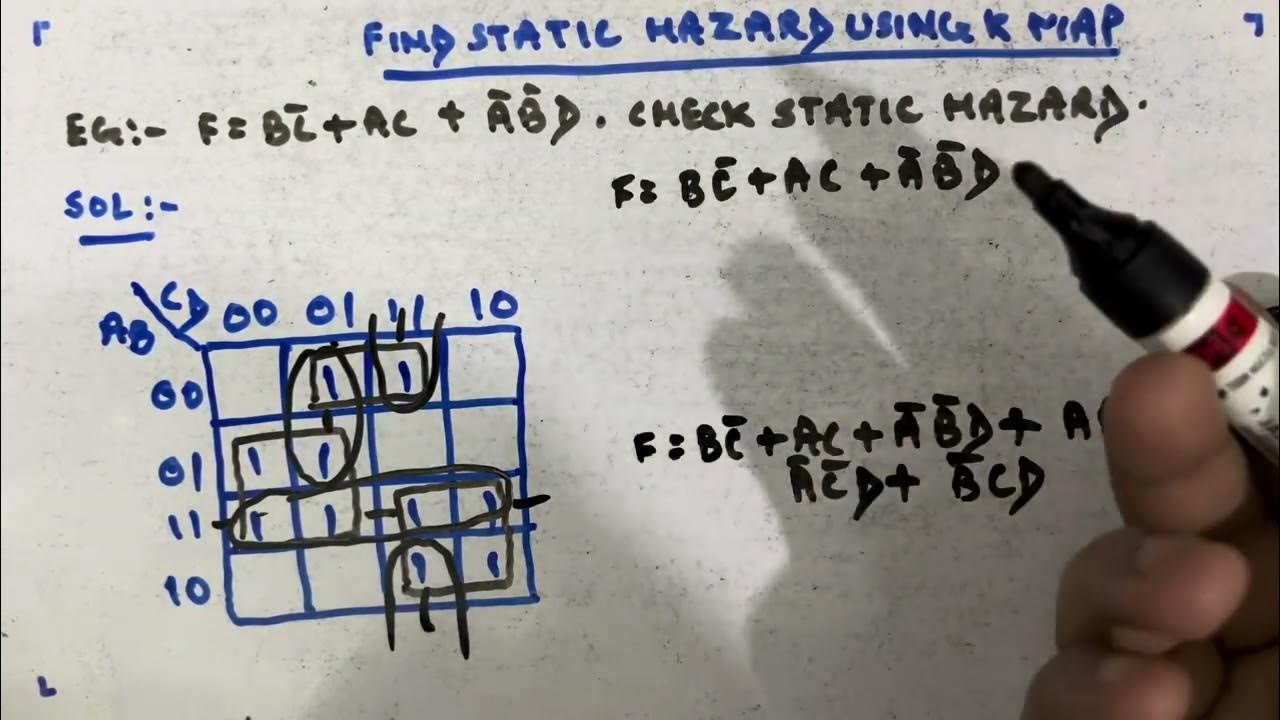 FIND STATIC HAZARD USING K MAP
EG:- F = BC̅ + AC + A̅B̅D. CHECK STATIC HAZARD.
F = BC̅ + AC + A̅B̅D
SOL:-
CD
AB
00 01 11 10
00 1 1
01 1 1
11 1 1 1 1
10 1 1
F = BC̅ + AC + A̅B̅D + A
A̅C̅D + B̅CD